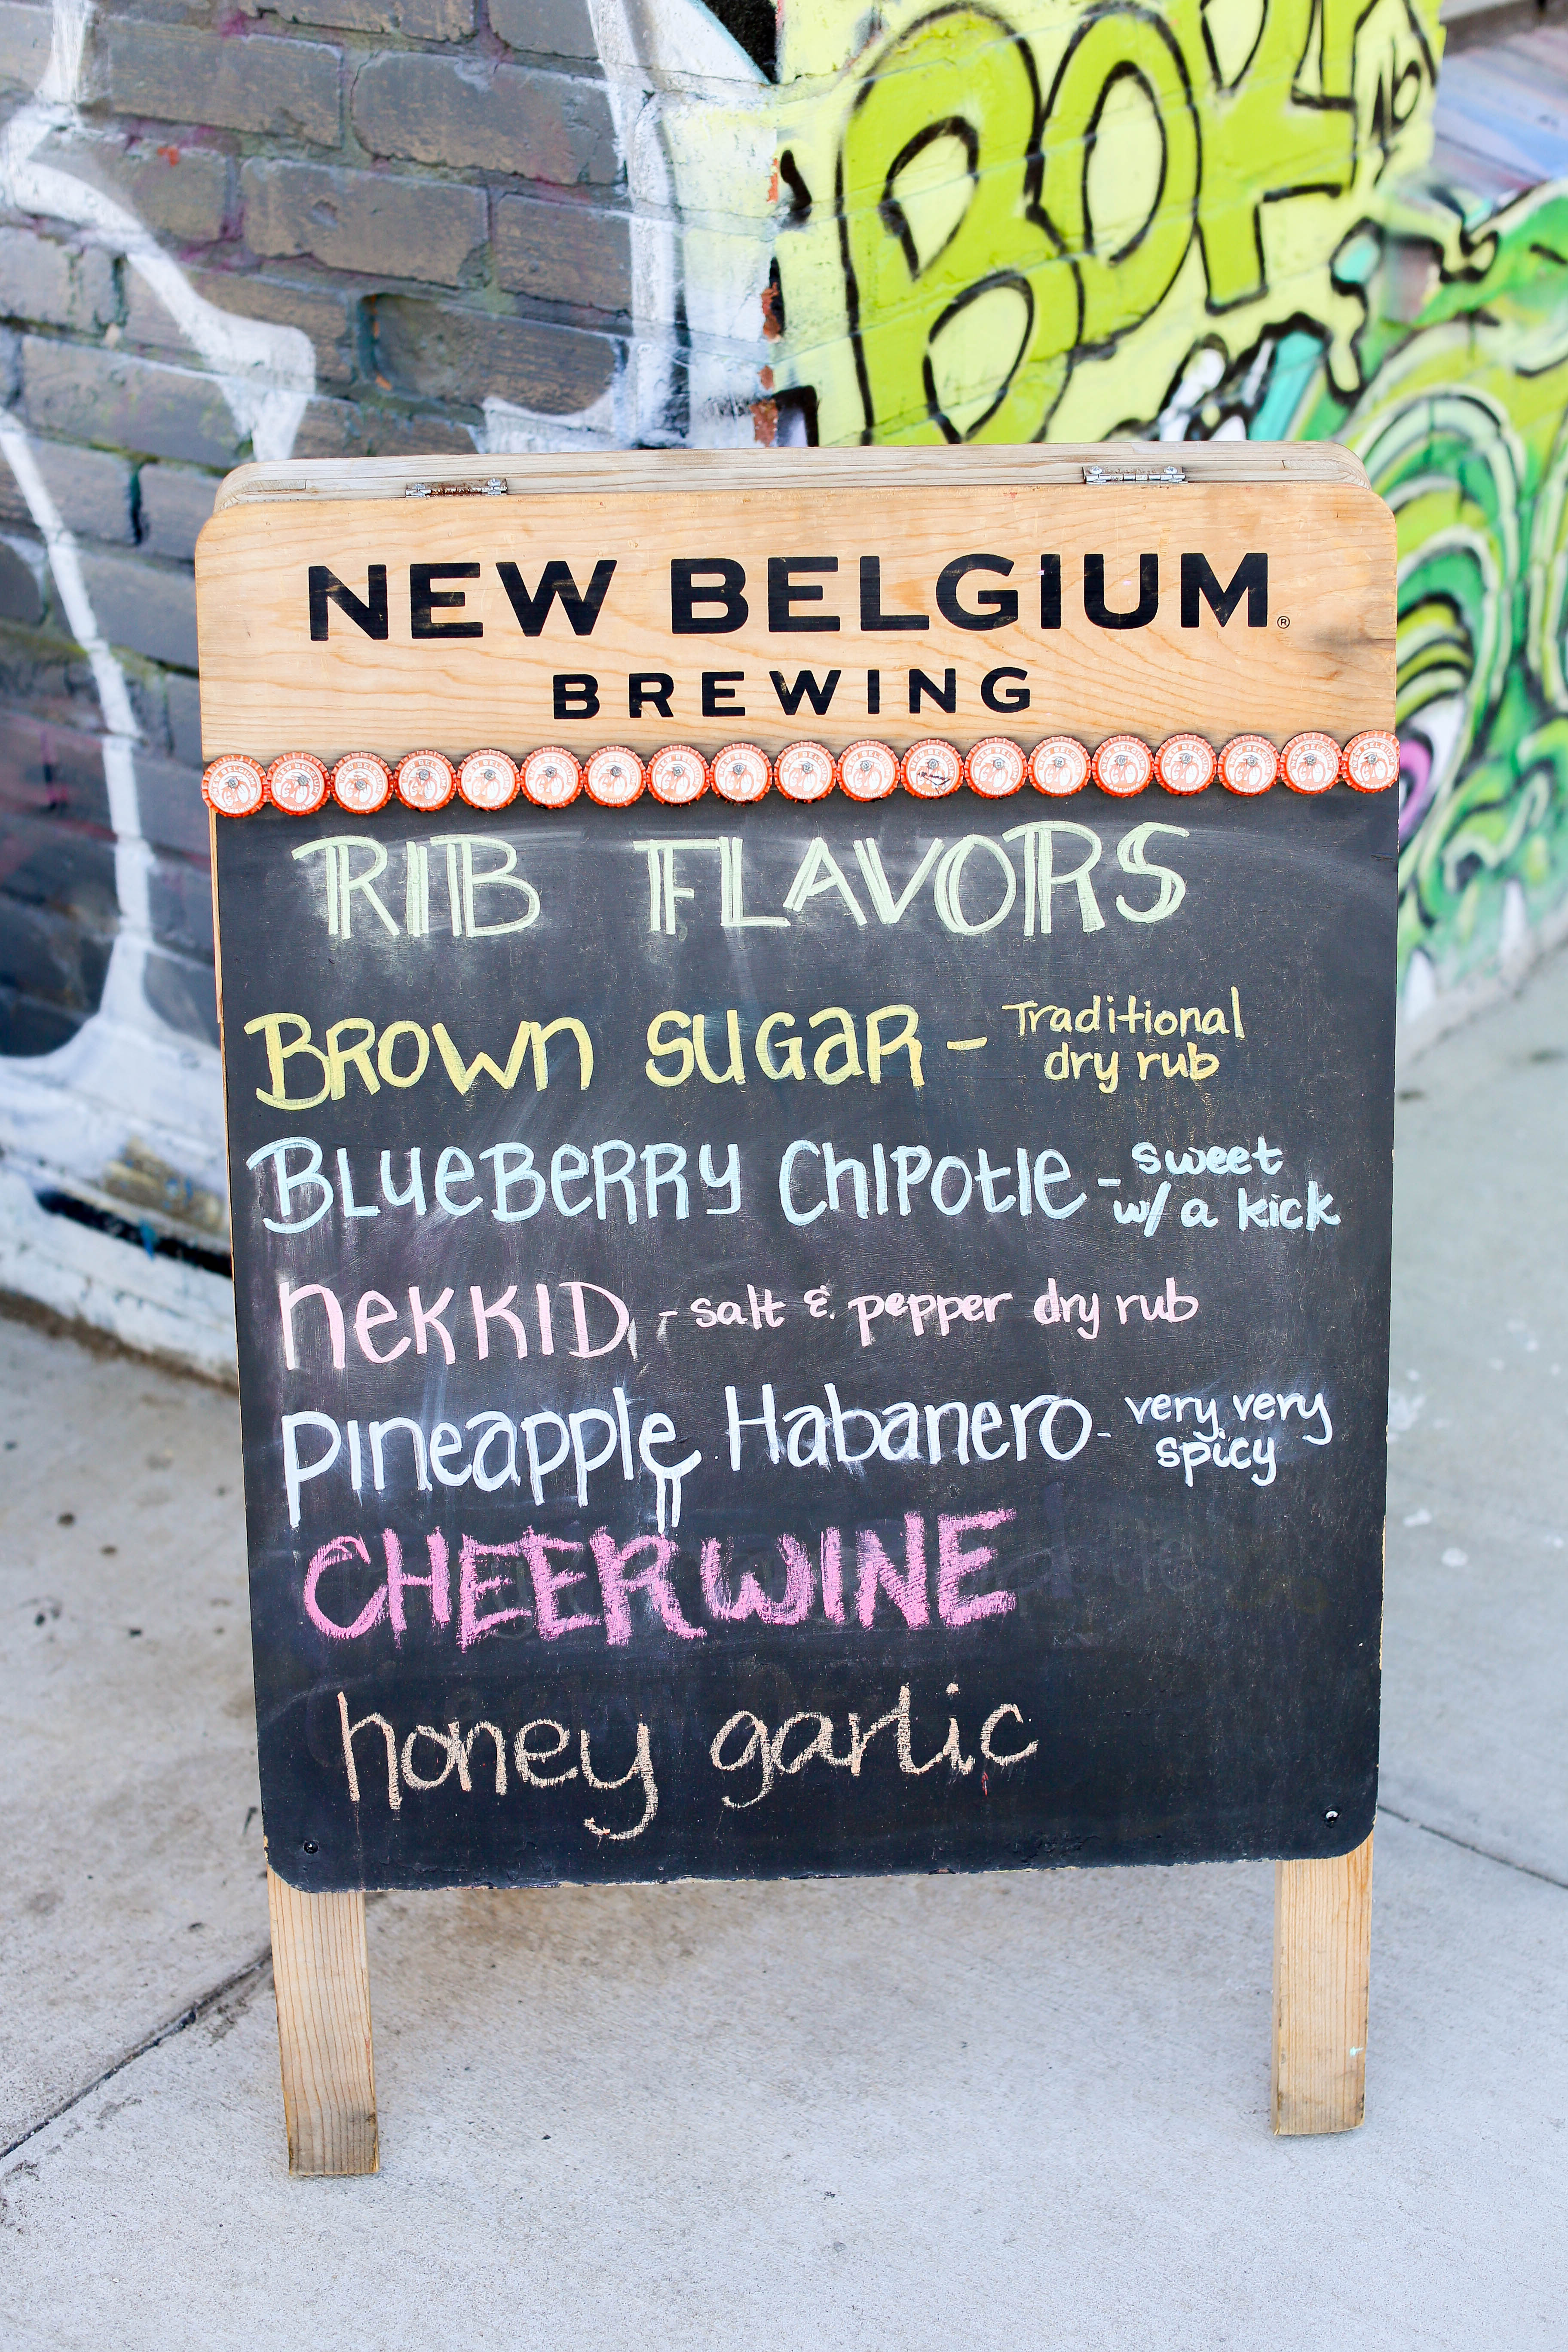 BOR
NEW BELGIUM®
BREWING
RIB FLAVORS
BROWN SUGAR - Traditional
dry rub
BLUEBERRY CHIPOTLE - sweet
w/ a kick
NEKKID - salt & pepper dry rub
pineapple Habanero - very very
spicy
CHEERWINE
honey garlic